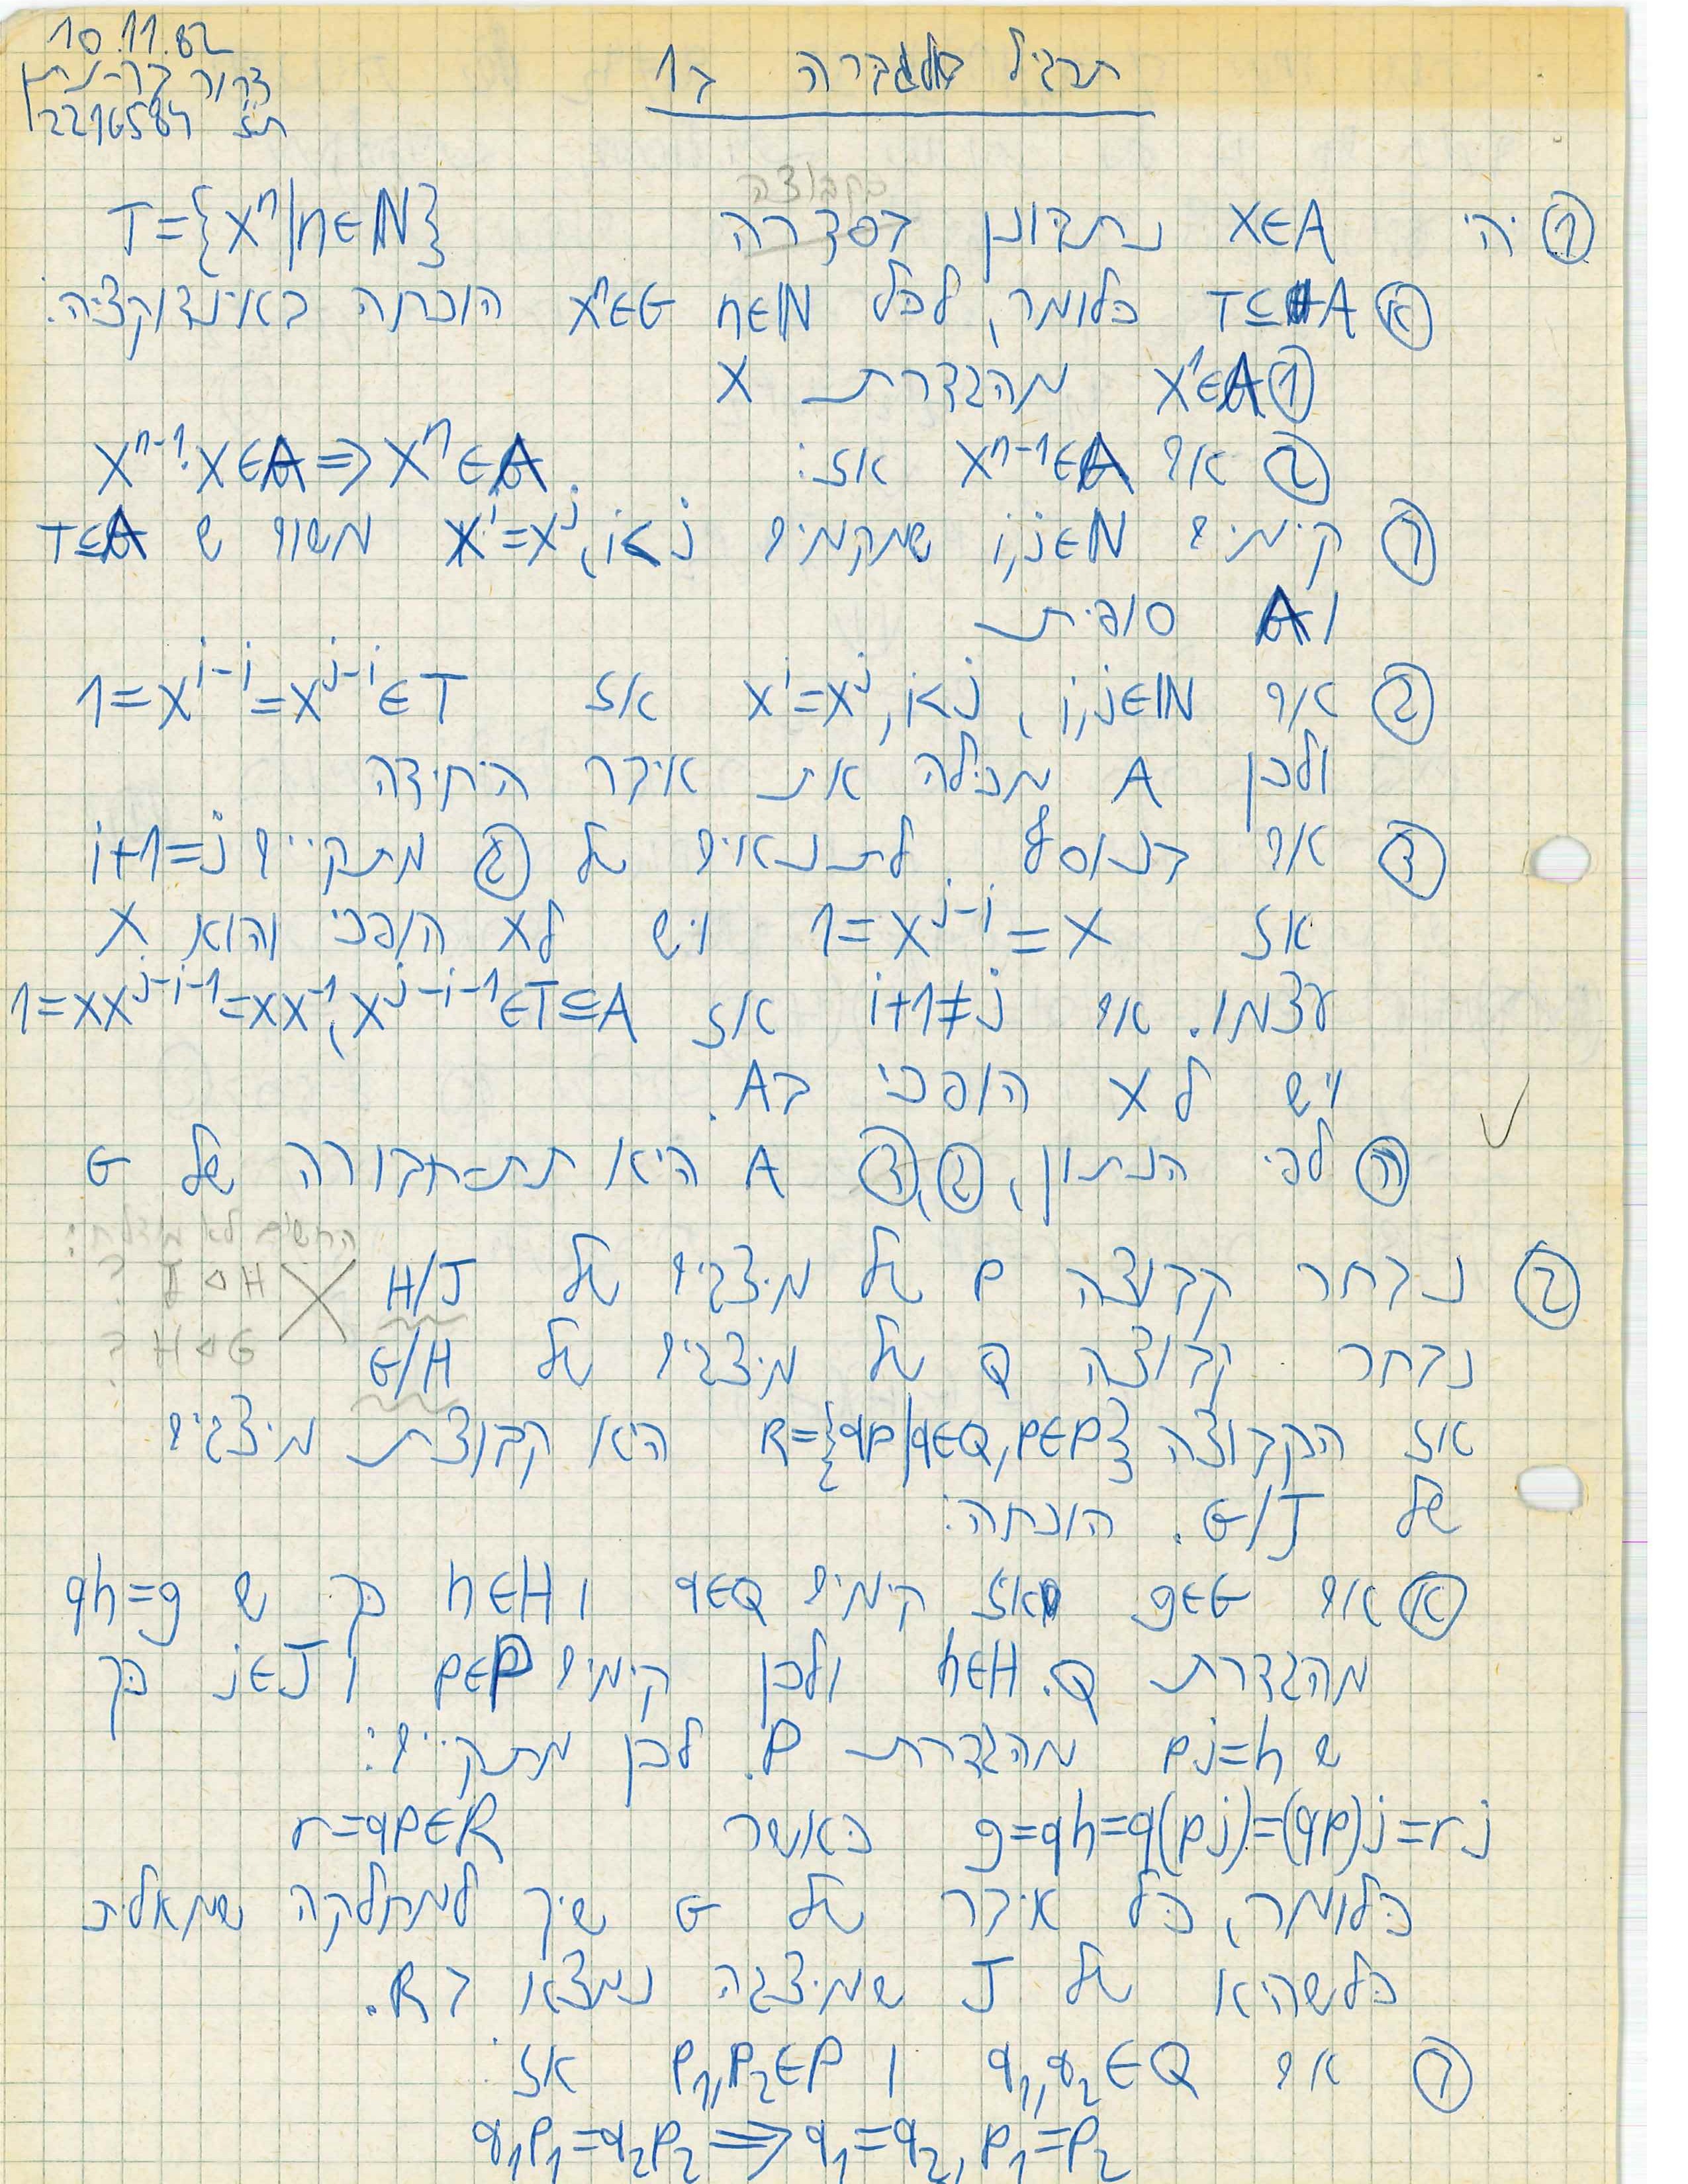 10.11.82
דרור בר-נתן
תז 2216584
תרגיל באלגברה ב1
בקבוצה
① יהי x∈A נתבונן בסדרה T={xⁿ|n∈ℕ}
Ⓐ T⊆A כלומר, לכל n∈ℕ xⁿ∈G הוכחה באינדוקציה:
① x¹∈A מהגדרת x
② אם xⁿ⁻¹∈A אז: xⁿ⁻¹·x∈A⇒xⁿ∈A.
ⓑ קימים i,j∈ℕ שמקימים i<j, xⁱ=xʲ משום ש T⊆A
וA סופית
ⓖ אם i,j∈ℕ, i<j, xⁱ=xʲ אז 1=xⁱ⁻ⁱ=xʲ⁻ⁱ∈T
ולכן A מכילה את איבר היחידה
ⓓ אם בנוסף לתנאים של ⓖ מתקיים i+1=j
אז 1=xʲ⁻ⁱ=x ויש לx הופכי והוא x
עצמו. אם i+1≠j אז 1=xxʲ⁻ⁱ⁻¹=xx⁻¹, xʲ⁻ⁱ⁻¹∈T⊆A
ויש לx הופכי בA.
ⓗ לפי הנתון, ⓖ, ⓓ A היא תת-חבורה של G
הרישום לא מוצלח:
② נבחר קבוצה P של מיצגים של H/J
J◁H ?
נבחר קבוצה Q של מיצגים של G/H
H◁G ?
אז הקבוצה R={qp|q∈Q,p∈P} היא קבוצת מיצגים
של G/J. הוכחה:
Ⓐ אם g∈G אז קימים q∈Q ו h∈H כך ש qh=g
מהגדרת Q. h∈H ולכן קימים p∈P ו j∈J כך
ש pj=h מהגדרת P. לכן מתקיים:
g=qh=q(pj)=(qp)j=rj כאשר r=qp∈R
כלומר, כל איבר של G שיך למחלקה שמאלית
כלשהיא של J שמיצגה נמצא בR.
ⓑ אם q₁,q₂∈Q ו p₁,p₂∈P אז:
q₁p₁=q₂p₂⇒q₁=q₂, p₁=p₂